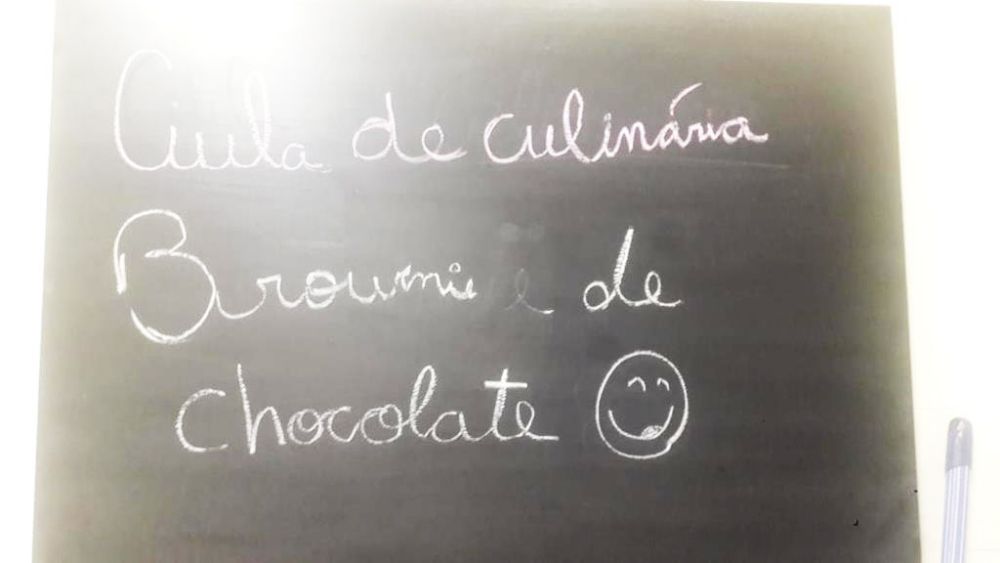 Aula de culinária
Brownie de
chocolate